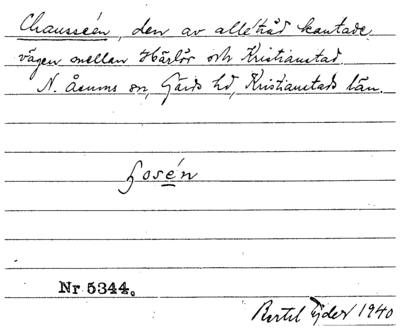 Chausséen, den av alléträd kantade
vägen mellan Härlöv och Kristianstad.
N. Åsums sn, Gärds hd, Kristianstads län.
ʃosén
Nr 5344.
Bertil Ejder 1940